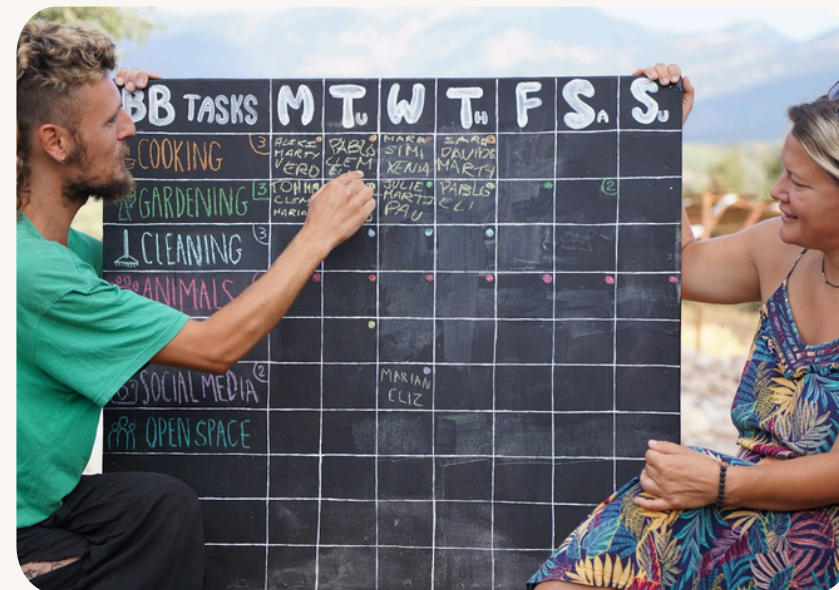 BB TASKS M TU W TH F SA SU
COOKING 3
ALEKS MARTY VERO
PABLO CLEM
MARA SIMI XENIA
SARA DAVIDE MARTY
GARDENING 3
CLEM MARIA
JULIE PAU
PABLO ELI
2
CLEANING 3
ANIMALS
SOCIAL MEDIA 2
MARIAN
ELIZ
OPEN SPACE